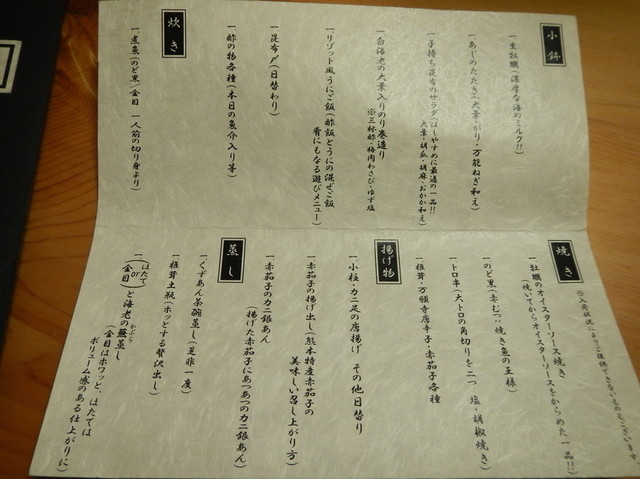 小鉢
一、生牡蠣(濃厚な海のミルク!!)
一、あじのたたき(大葉・がり・万能ねぎ和え)
一、子持ち昆布のサラダ(はしやすめに最適の一品!!
大葉・胡瓜・胡麻・おかか和え)
一、白海老の大葉入りのり巻造り
※三杯酢・梅肉わさび・ゆず塩
一、リゾット風うにご飯(酢飯とうにの混ぜご飯
肴にもなる遊びメニュー)
一、昆布〆(日替わり)
一、酢の物各種(本日の魚介入り等)
炊き
一、煮魚(のど黒)(金目 一人前の切り身より)
※入荷状況によりご提供できないものもございます。
焼き
一、牡蠣のオイスターソース焼き
(焼いてからオイスターソースをからめた一品!!)
一、のど黒(赤むつ:焼き魚の王様)
一、トロ串(大トロの角切りを二つ 塩・胡椒焼き)
一、椎茸・万願寺唐辛子・赤茄子各種
揚げ物
一、小柱・カニ足の唐揚げ その他日替り
一、赤茄子の揚げ出し(熊本特産赤茄子の
美味しい召し上がり方)
一、赤茄子のカニ銀あん
(揚げた赤茄子にあつあつのカニ銀あん)
蒸し
一、くずあん茶碗蒸し(是非一度)
一、椎茸土瓶(ホッとする贅沢出し)
一、(はたてor金目)と海老の蕪蒸し
かぶら
(金目はホワッと、はたては
ボリューム感のある仕上がりに)